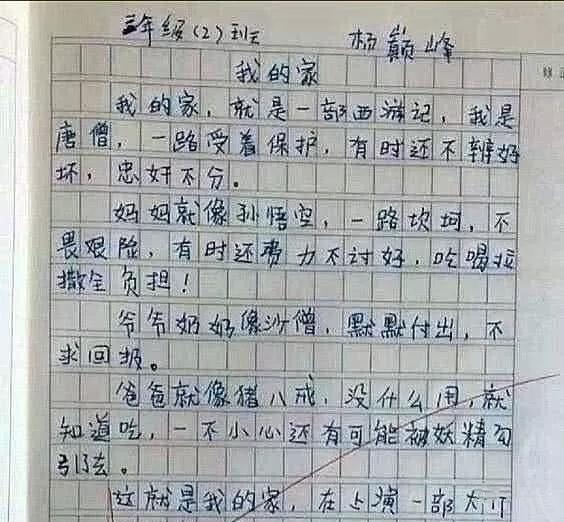 三年级(2)班 杨巅峰
我的家
我的家，就是一部西游记，我是
唐僧，一路受着保护，有时还不辨好
坏，忠奸不分。
妈妈就像孙悟空，一路坎坷，不
畏艰险，有时还费力不讨好，吃喝拉
撒全负担！
爷爷奶奶像沙僧，默默付出，不
求回报。
爸爸就像猪八戒，没什么用，就
知道吃，一不小心还有可能被妖精勾
引去。
这就是我的家，在上演一部大